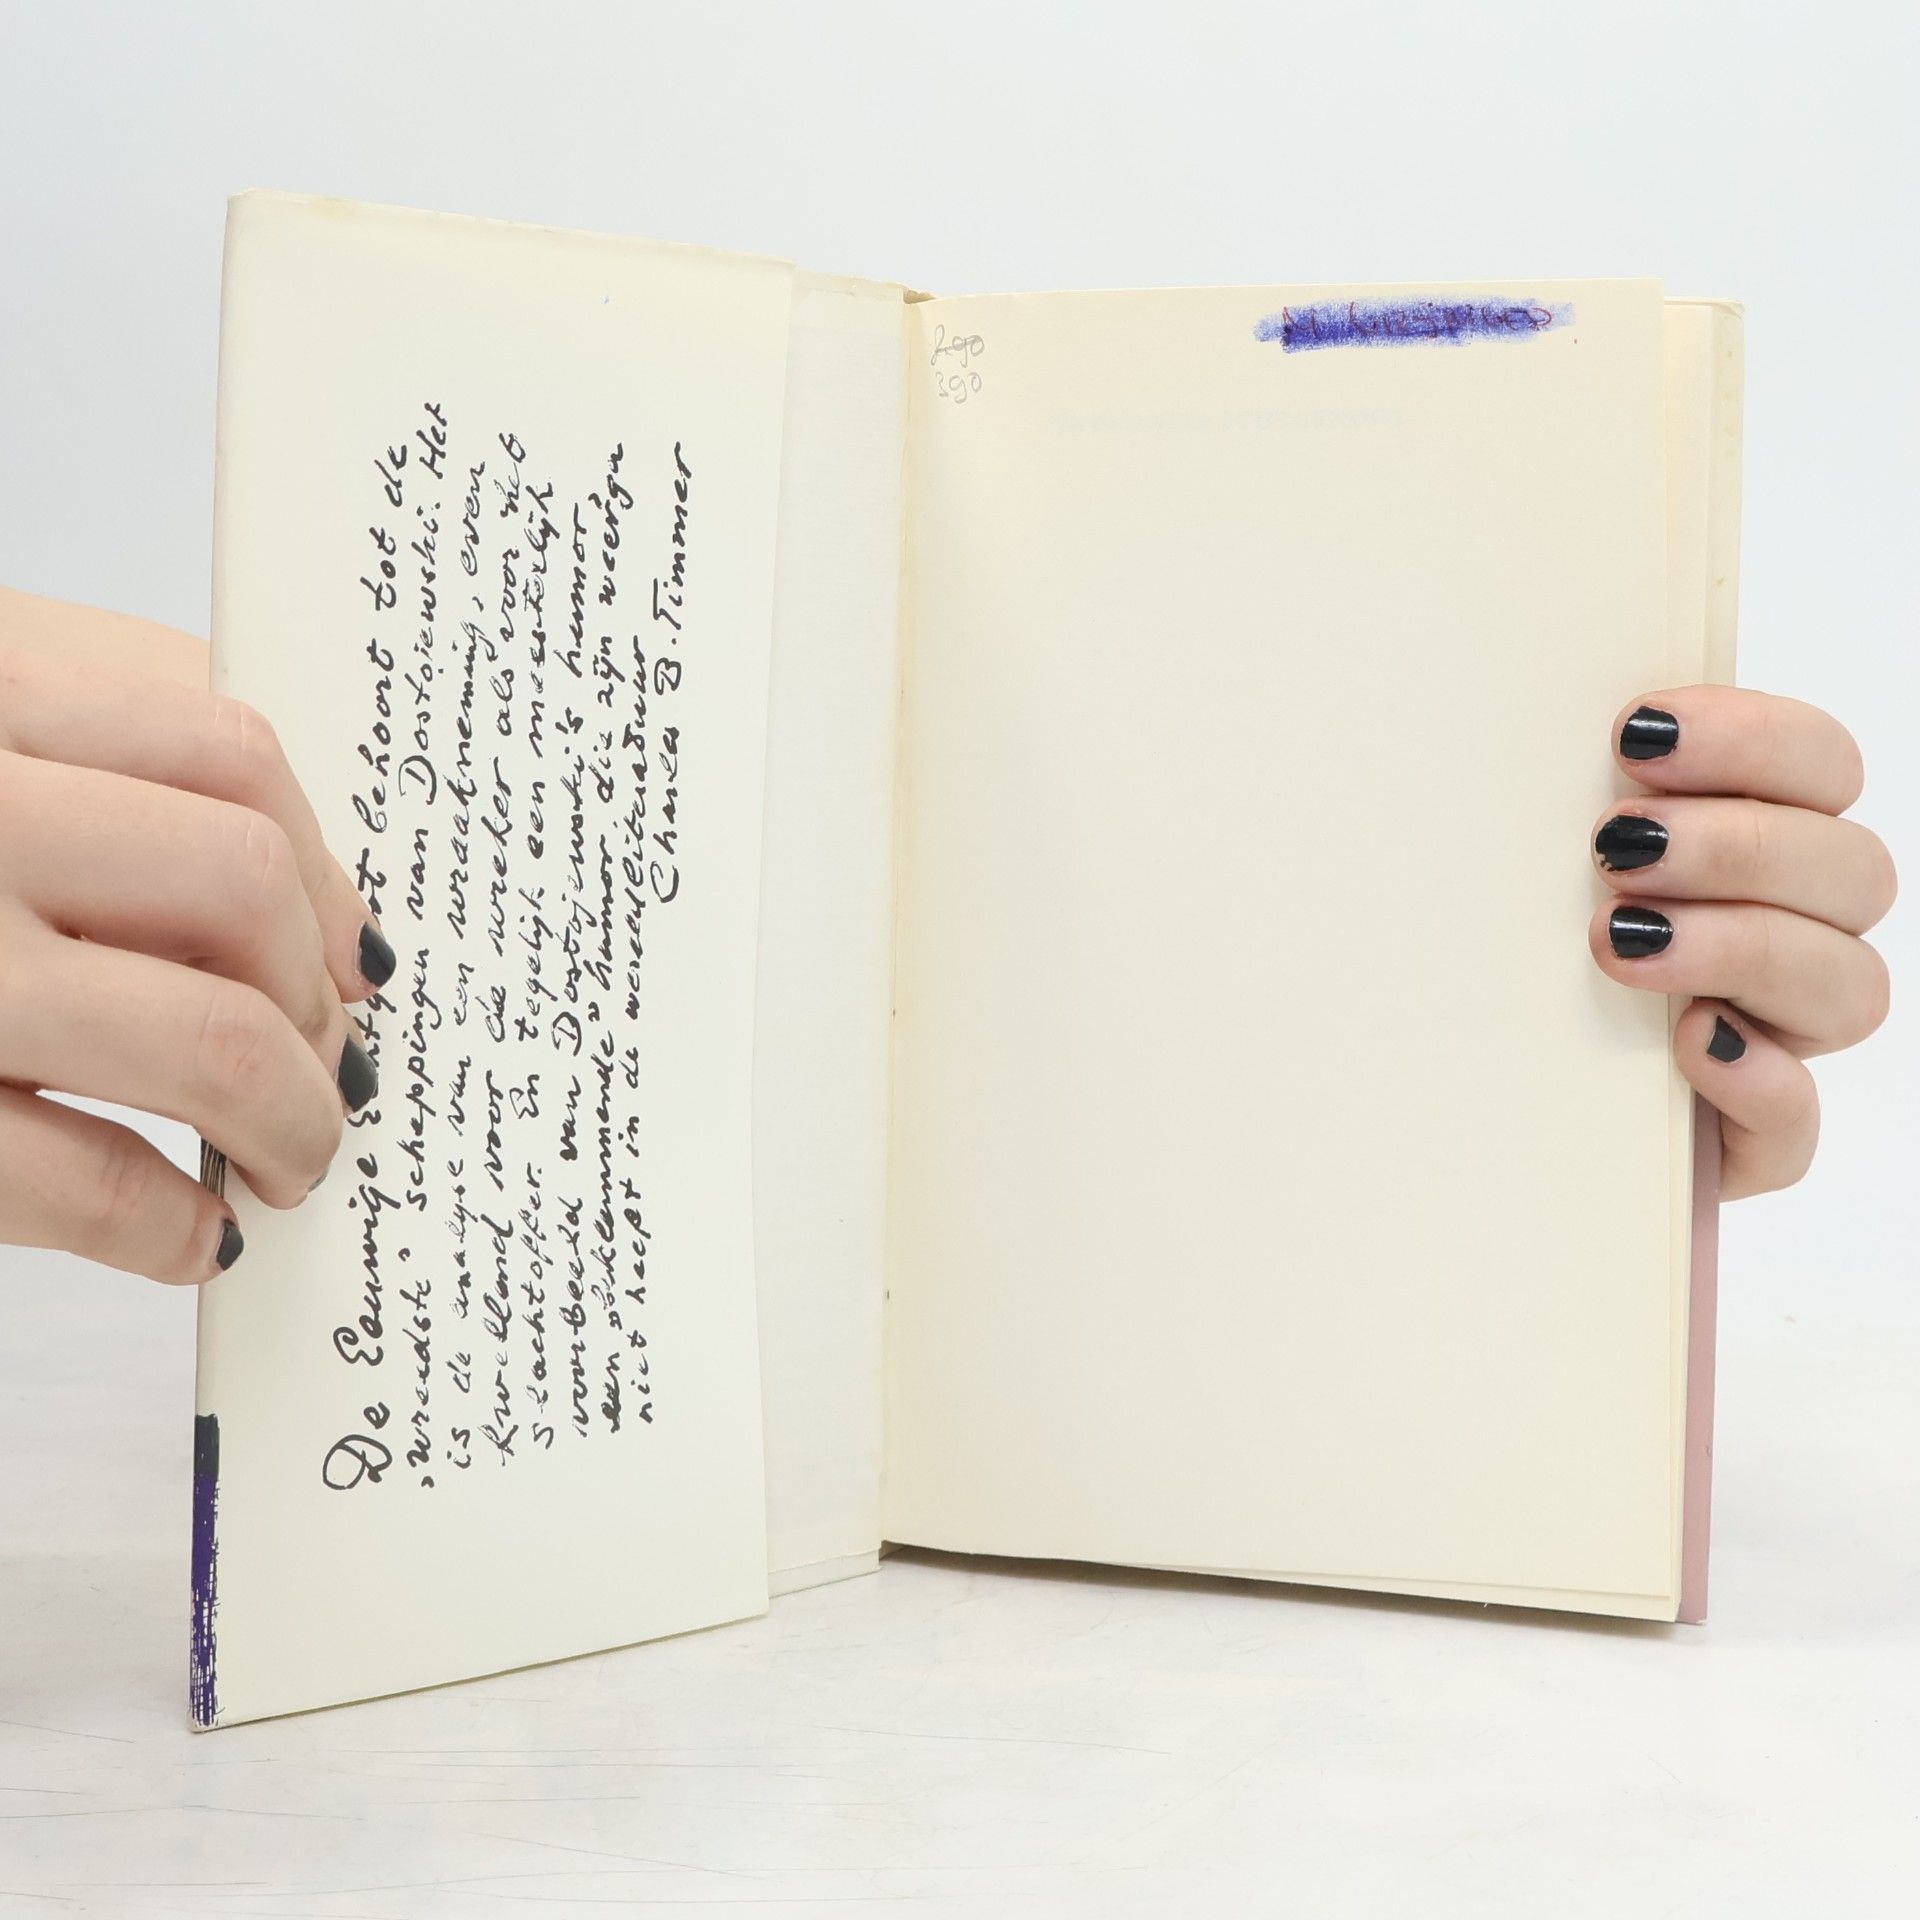 De Eeuwige Echtgenoot behoort tot de
„wreedste" scheppingen van Dostojewski. Het
is de analyse van een wraakneming, even
kwellend voor de wreker als voor het
slachtoffer. En tegelijk een meesterlijk
voorbeeld van Dostojewski's humor
een „beklemmende" humor, die zijn weerga
niet heeft in de wereldliteratuur
Charles B. Timmer
290
390